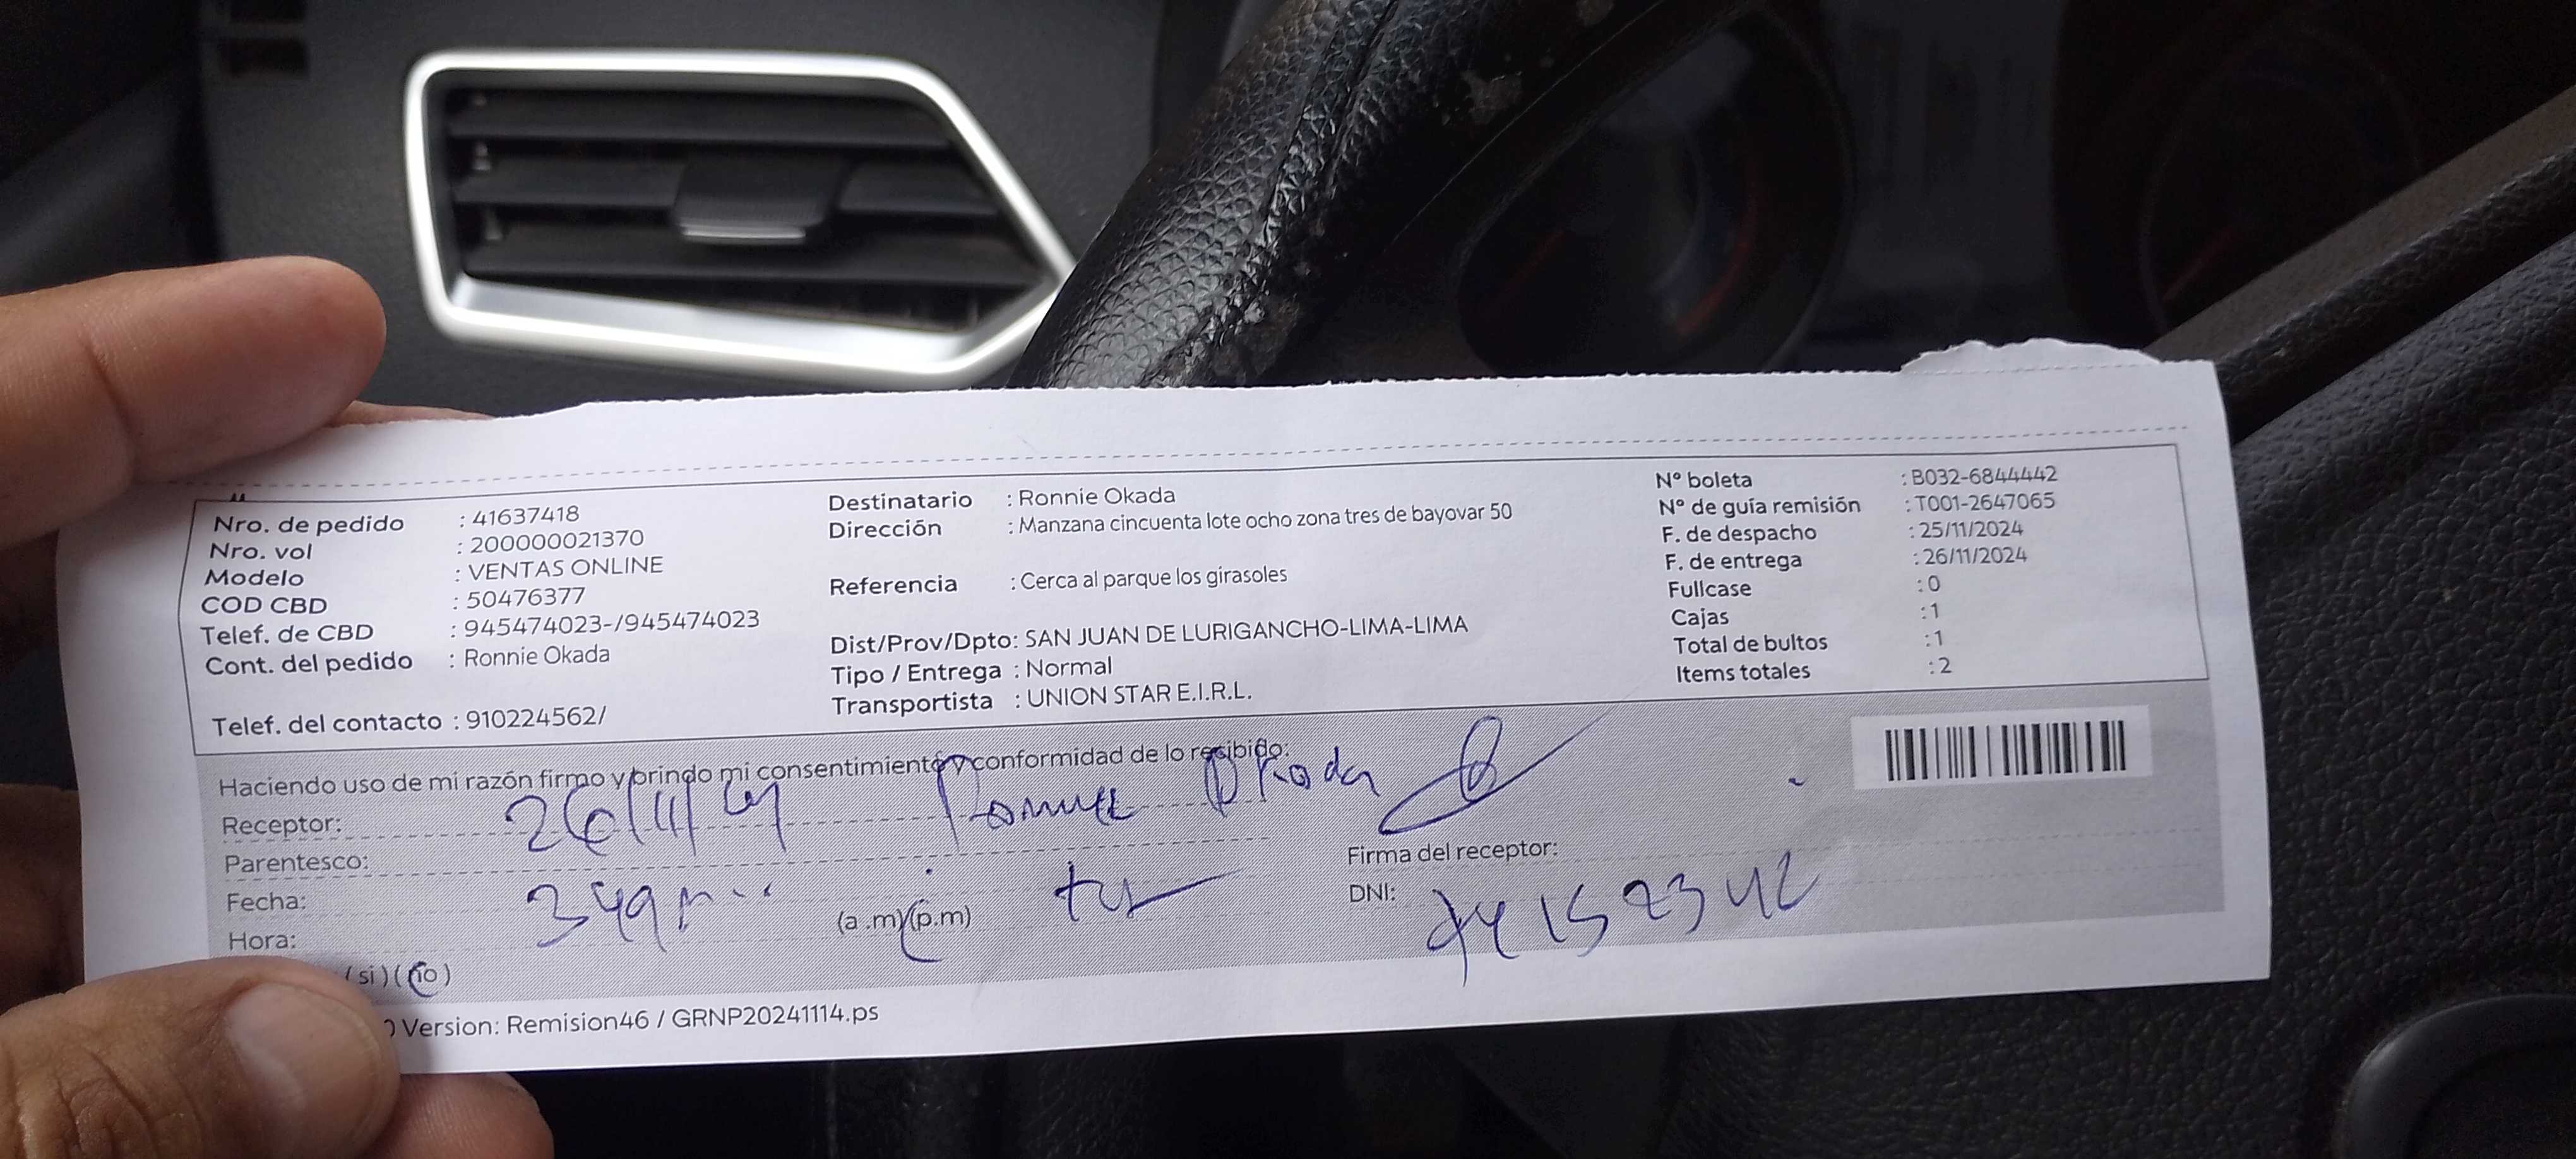 Nro. de pedido : 41637418
Nro. vol : 200000021370
Modelo : VENTAS ONLINE
COD CBD : 50476377
Telef. de CBD : 945474023-/945474023
Cont. del pedido : Ronnie Okada
Telef. del contacto : 910224562/
Destinatario : Ronnie Okada
Dirección : Manzana cincuenta lote ocho zona tres de bayovar 50
Referencia : Cerca al parque los girasoles
Dist/Prov/Dpto: SAN JUAN DE LURIGANCHO-LIMA-LIMA
Tipo / Entrega : Normal
Transportista : UNION STAR E.I.R.L.
Nº boleta : B032-6844442
Nº de guía remisión : T001-2647065
F. de despacho : 25/11/2024
F. de entrega : 26/11/2024
Fullcase : 0
Cajas : 1
Total de bultos : 1
Items totales : 2
Haciendo uso de mi razón firmo y brindo mi consentimiento y conformidad de lo recibido:
Receptor: 26/11/24 Okada
Parentesco:
Fecha:
Hora: (a .m)(p.m)
Firma del receptor:
DNI:
(si)(no)
Version: Remision46 / GRNP20241114.ps